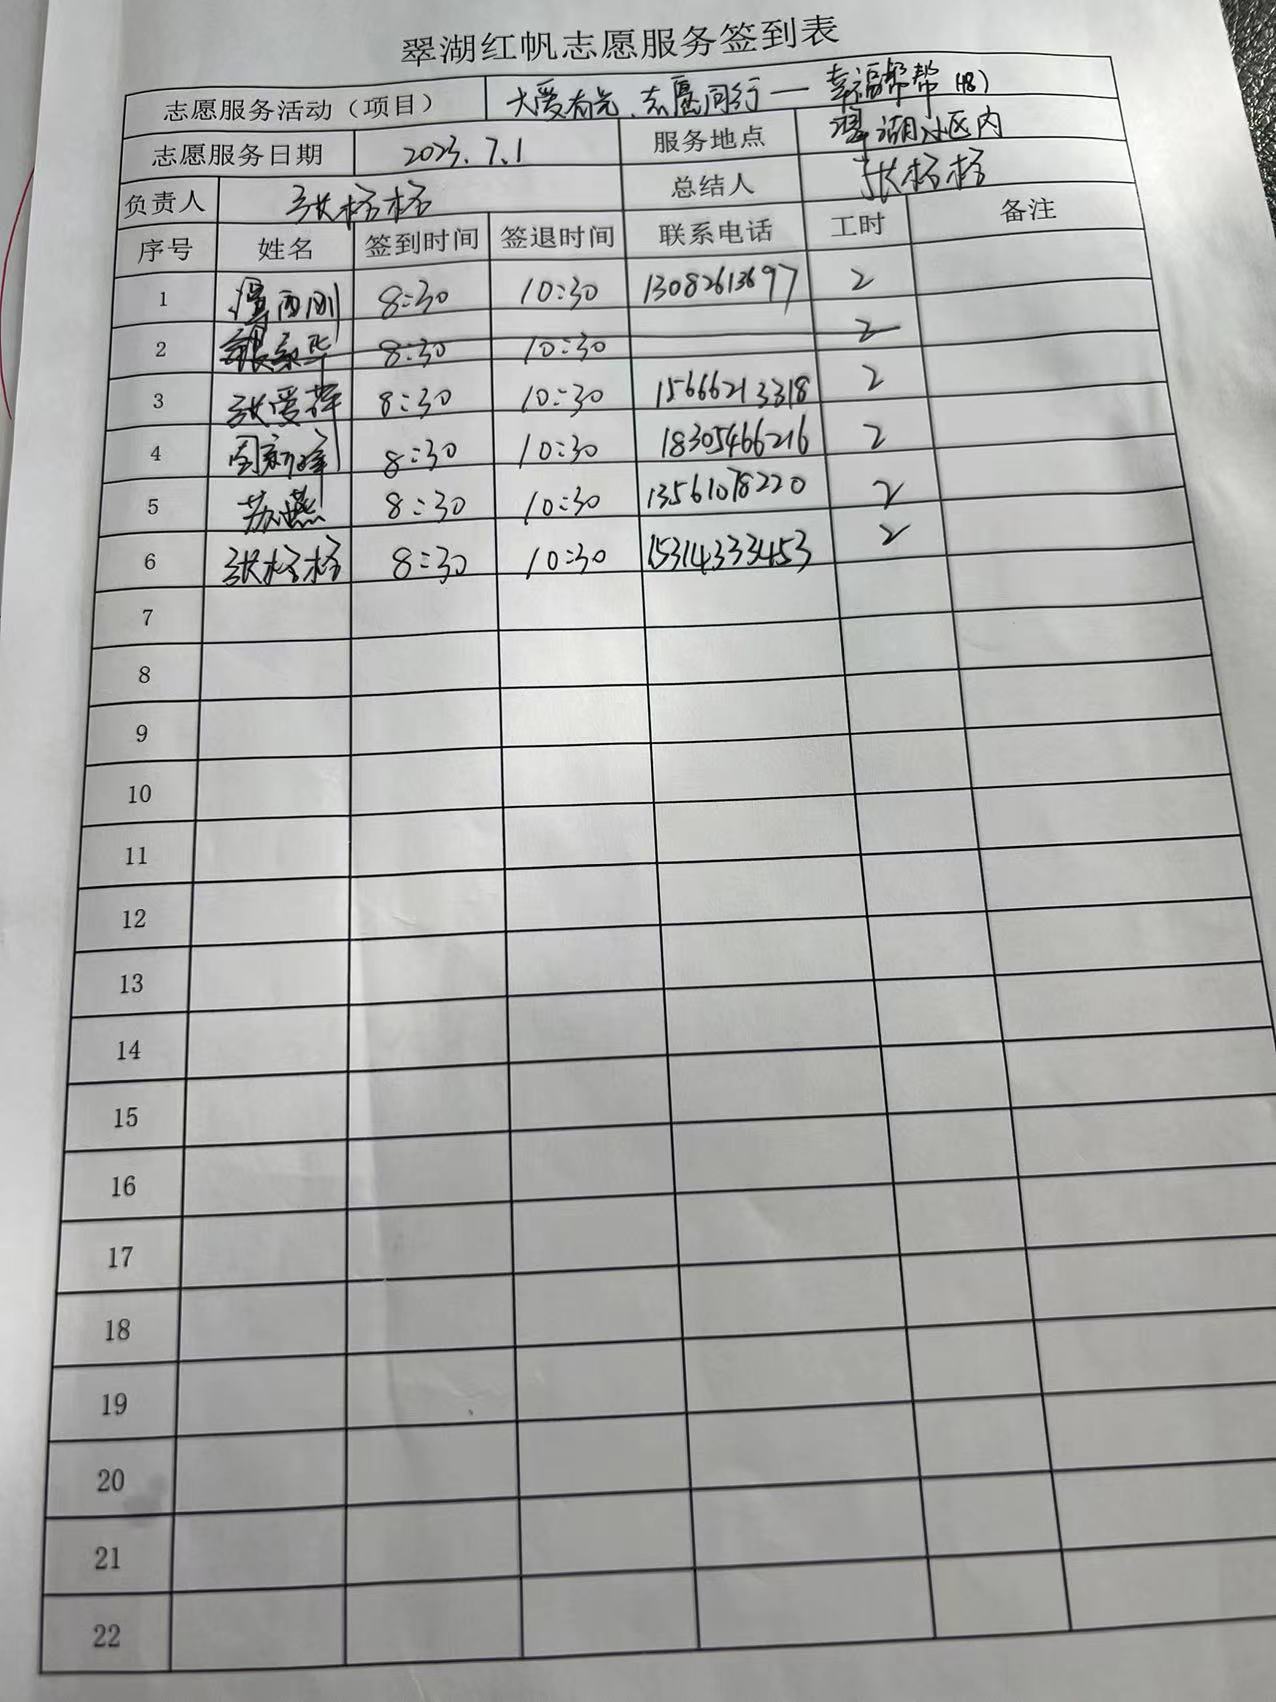 翠湖红帆志愿服务签到表
志愿服务活动（项目） 大爱有光、志愿同行一幸福帮帮
志愿服务日期 2023.7.1 服务地点 翠湖小区内
负责人 张格格 总结人 张格格
序号 姓名 签到时间 签退时间 联系电话 工时 备注
1 8:30 10:30 13082613697 2
2 8:30 10:30 2
3 张爱萍 8:30 10:30 15666213318 2
4 8:30 10:30 18305466216 2
5 苏燕 8:30 10:30 13561078220 2
6 张格格 8:30 10:30 15314333453 2
7
8
9
10
11
12
13
14
15
16
17
18
19
20
21
22